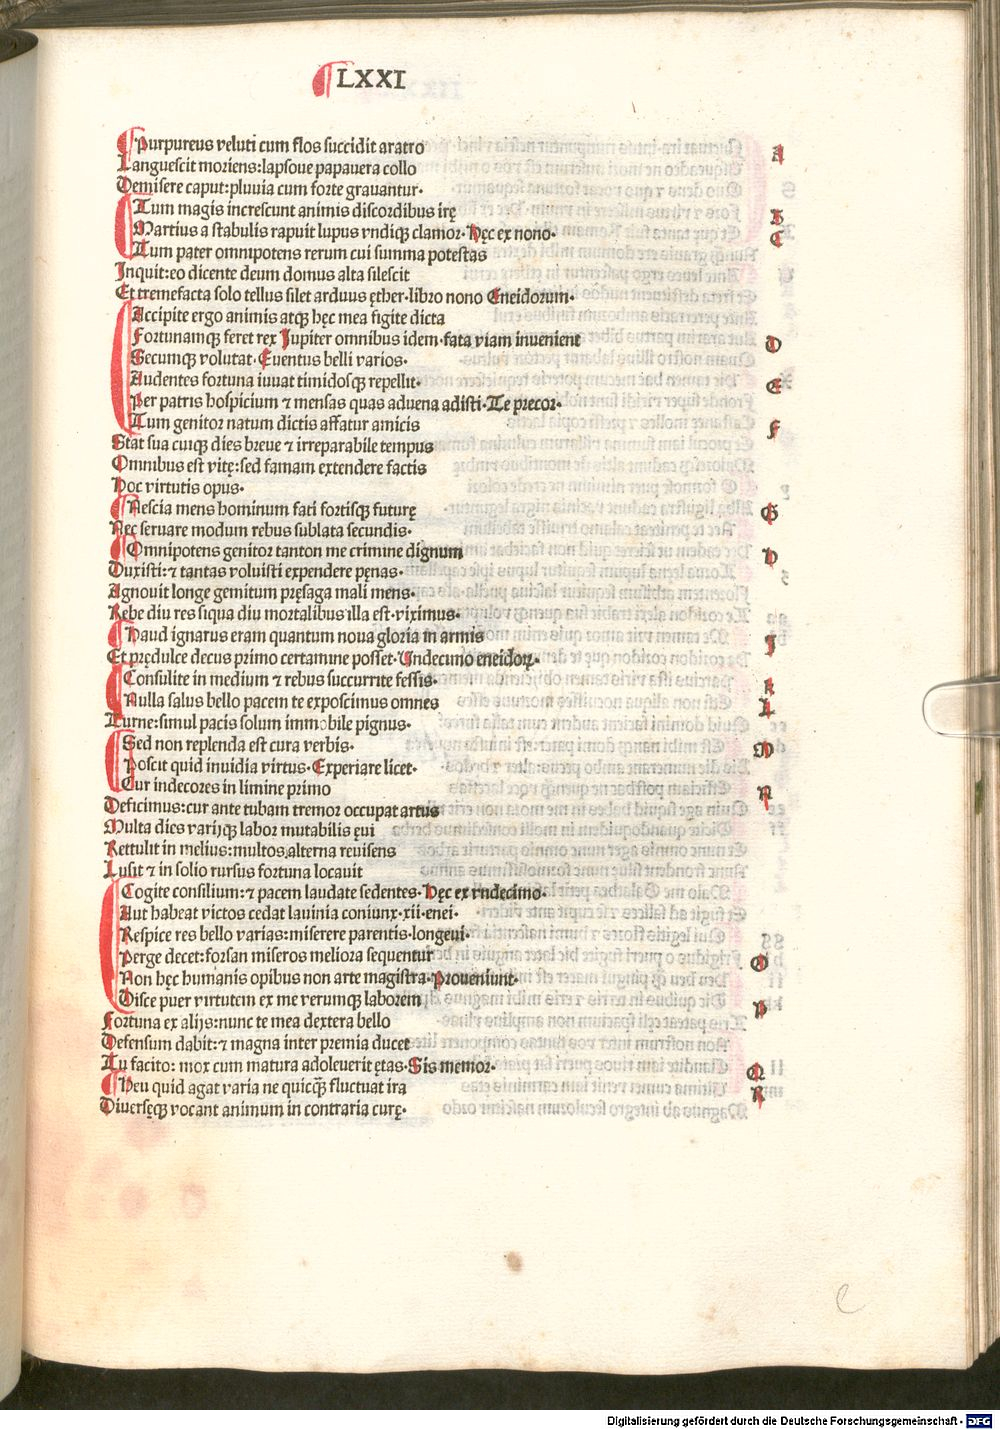 LXXI
Purpureus veluti cum flos succidit aratro
A
Languescit moriens:lapsoue papauera collo
Demisere caput:pluuia cum forte grauantur·
Tum magis increscunt animis discordibus irę
B
Martius a stabulis rapuit lupus vndiqꝫ clamor· Hęc ex nono·
C
Tum pater omnipotens rerum cui summa potestas
Inquit:eo dicente deum domus alta silescit
Et tremefacta solo tellus silet arduus ęther·libro nono Eneidorum·
Accipite ergo animis atqꝫ hęc mea figite dicta
Fortunamqꝫ feret rex Jupiter omnibus idem·fata viam inuenient
D
Secumqꝫ volutat· Euentus belli varios·
Audentes fortuna iuuat timidosqꝫ repellit·
E
Per patris hospicium ⁊ mensas quas aduena adisti·Te precor·
Tum genitor natum dictis affatur amicis
F
Stat sua cuiqꝫ dies breue ⁊ irreparabile tempus
Omnibus est vitę:sed famam extendere factis
Hoc virtutis opus·
Nescia mens hominum fati fortisqꝫ futurę
G
Nec seruare modum rebus sublata secundis·
Omnipotens genitor tanton me crimine dignum
H
Duxisti:⁊ tantas voluisti expendere pęnas·
Agnouit longe gemitum pręsaga mali mens·
Rebe diu res siqua diu mortalibus illa est·viximus·
Haud ignarus eram quantum noua gloria in armis
J
Et prędulce decus primo certamine posset·Vndecimo eneidoꝝ·
Consulite in medium ⁊ rebus succurrite fessis·
K
Nulla salus bello pacem te exposcimus omnes
L
Turne:simul pacis solum immobile pignus·
Sed non replenda est cura verbis·
M
Poscit quid inuidia virtus· Experiare licet·
Cur indecores in limine primo
N
Deficimus:cur ante tubam tremor occupat artus
Multa dies varijqꝫ labor mutabilis ęui
Rettulit in melius:multos alterna reuisens
Lusit ⁊ in solio rursus fortuna locauit
Cogite consilium:⁊ pacem laudate sedentes· Hęc ex vndecimo·
Aut habeat victos cedat lauinia coniunx·xii·enei·
Respice res bello varias:miserere parentis·longeui·
Perge decet:forsan miseros meliora sequentur
O
Non hęc humanis opibus non arte magistra·Proueniunt·
Disce puer virtutem ex me verumqꝫ laborem
P
Fortuna ex alijs:nunc te mea dextera bello
Defensum dabit:⁊ magna inter premia ducet
Tu facito: mox cum matura adoleuerit ętas·Sis memor·
Q
Heu quid agat varia ne quicq̃ȝ fluctuat ira
R
Diuersęqꝫ vocant animum in contraria curę·
Digitalisierung gefördert durch die Deutsche Forschungsgemeinschaft - DFG